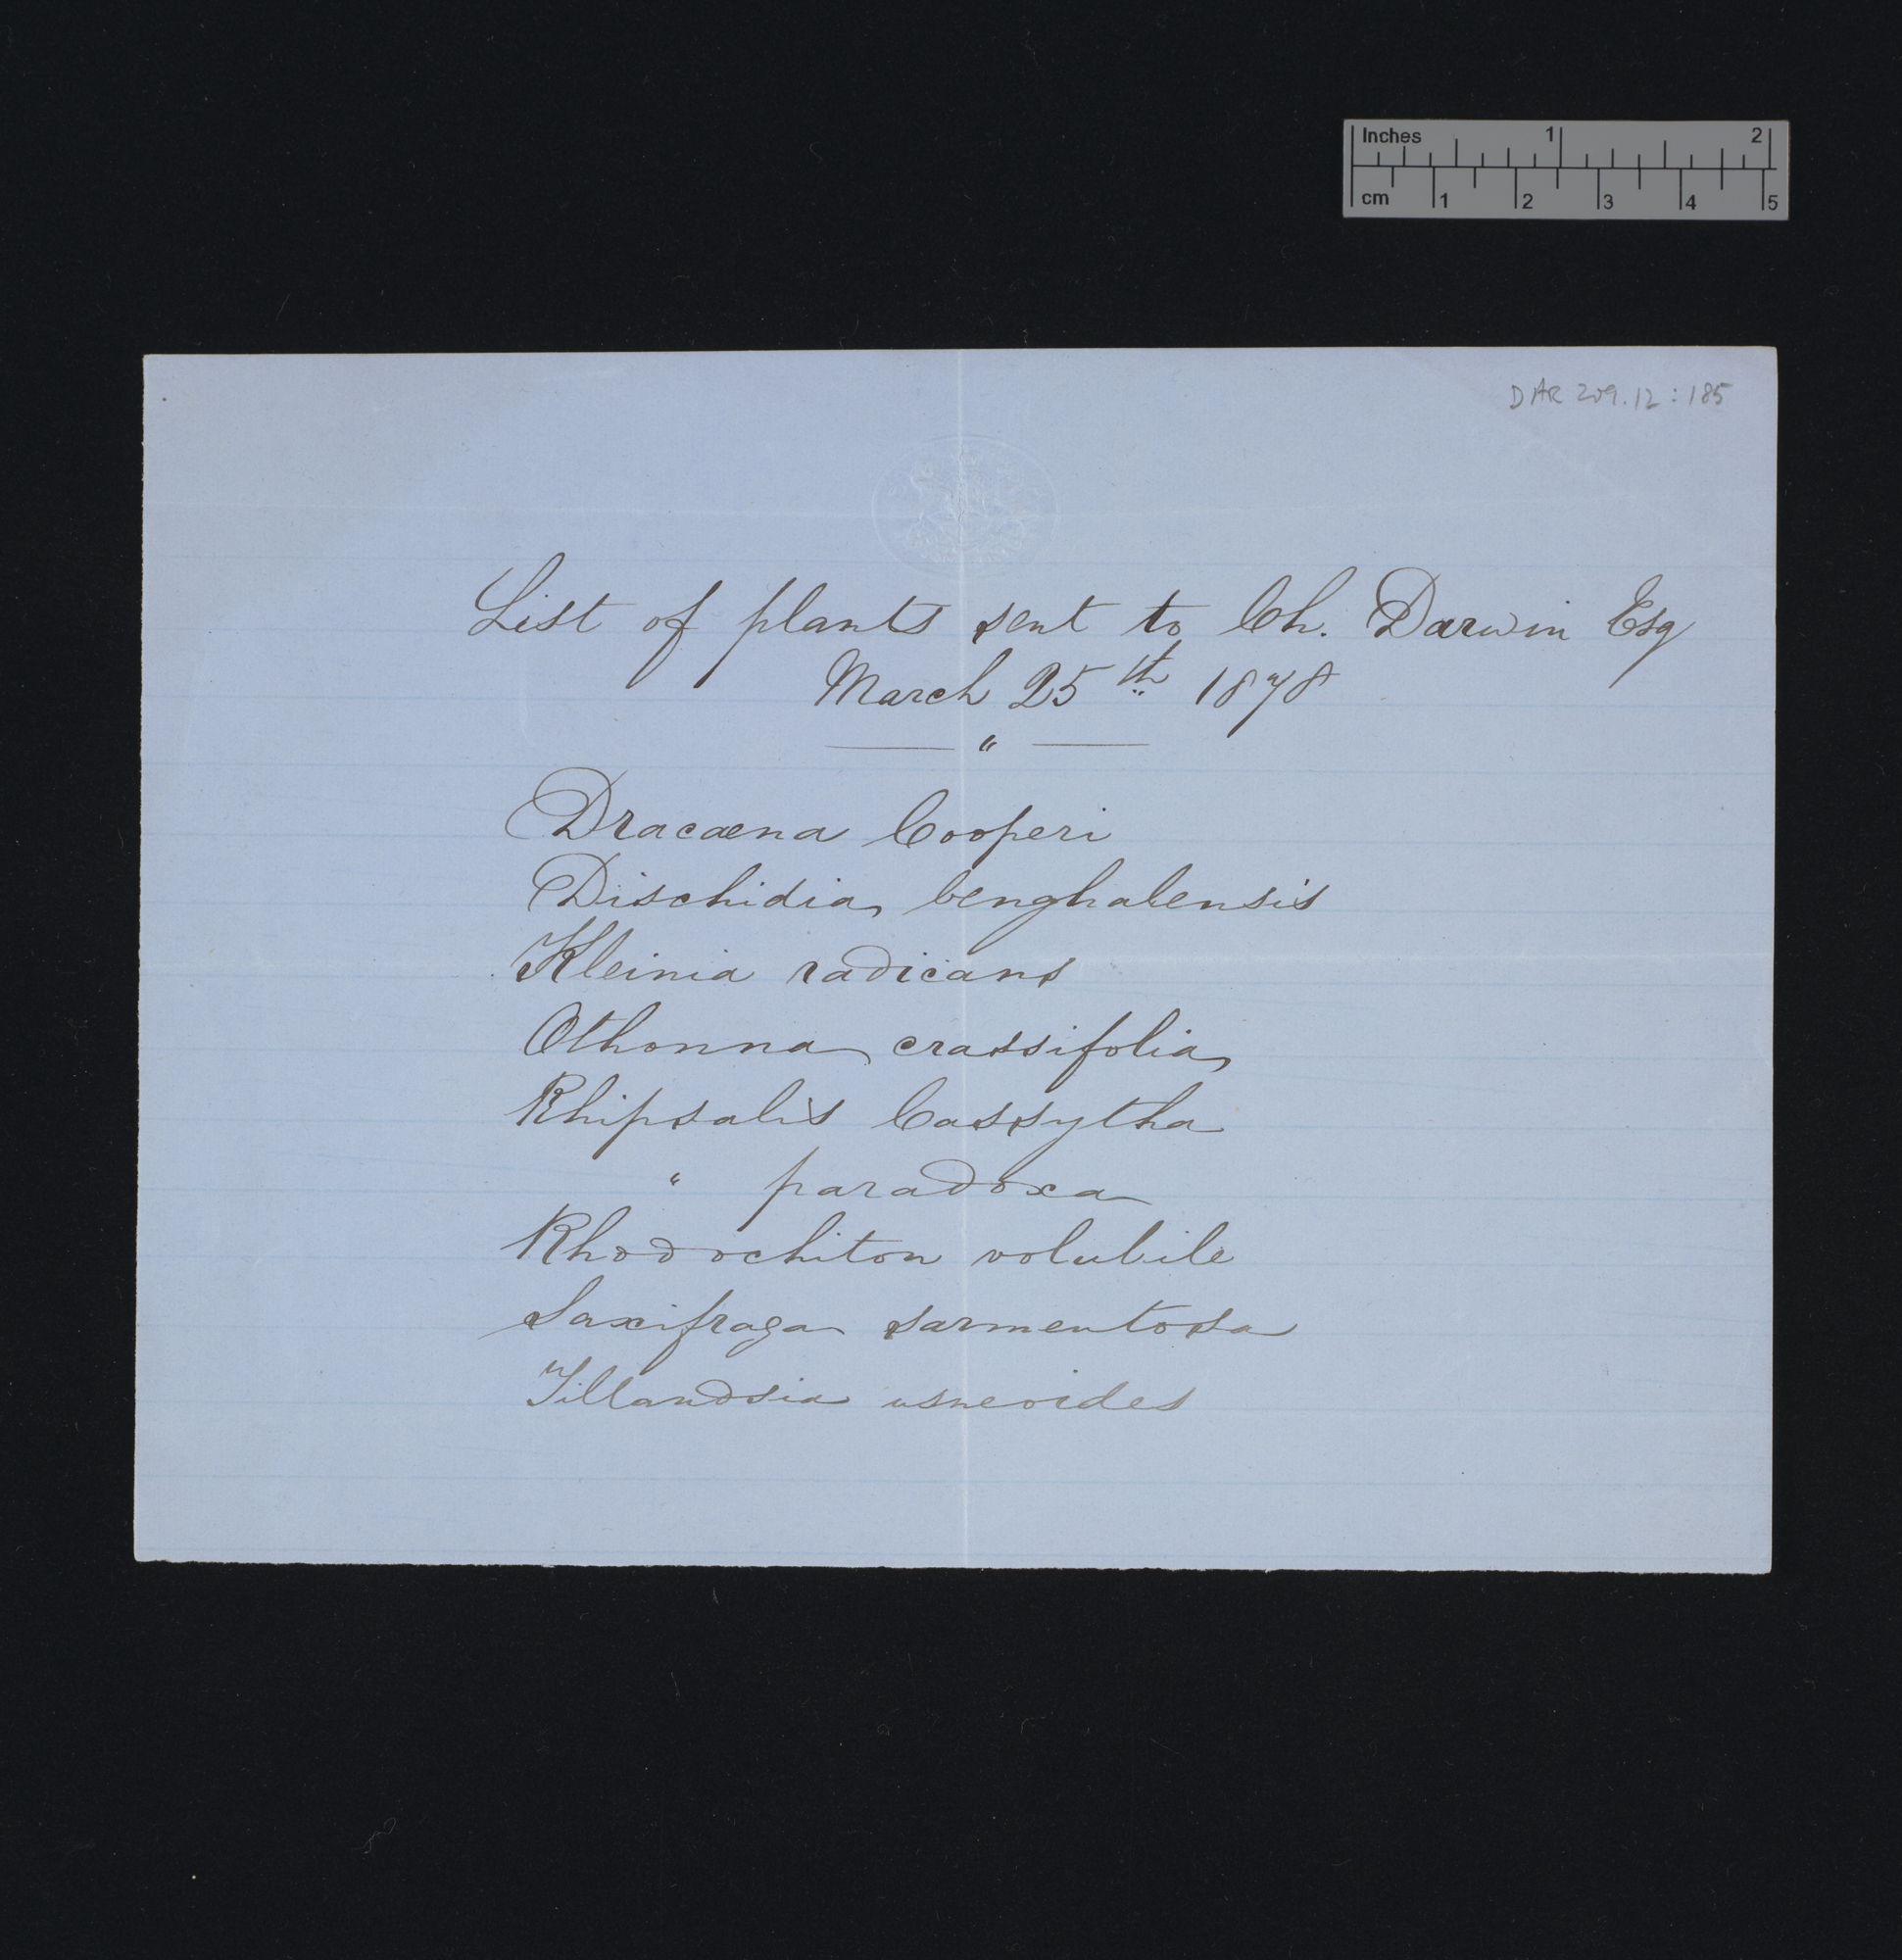 Inches 1 2
cm 1 2 3 4 5
DAR 209.12:185
List of plants sent to Ch. Darwin Esq
March 25th 1878
— " —
Dracaena Cooperi
Dischidia benghalensis
Kleinia radicans
Othonna crassifolia
Rhipsalis Cassytha
" paradoxa
Rhodochiton volubile
Saxifraga sarmentosa
Tillandsia usneoides